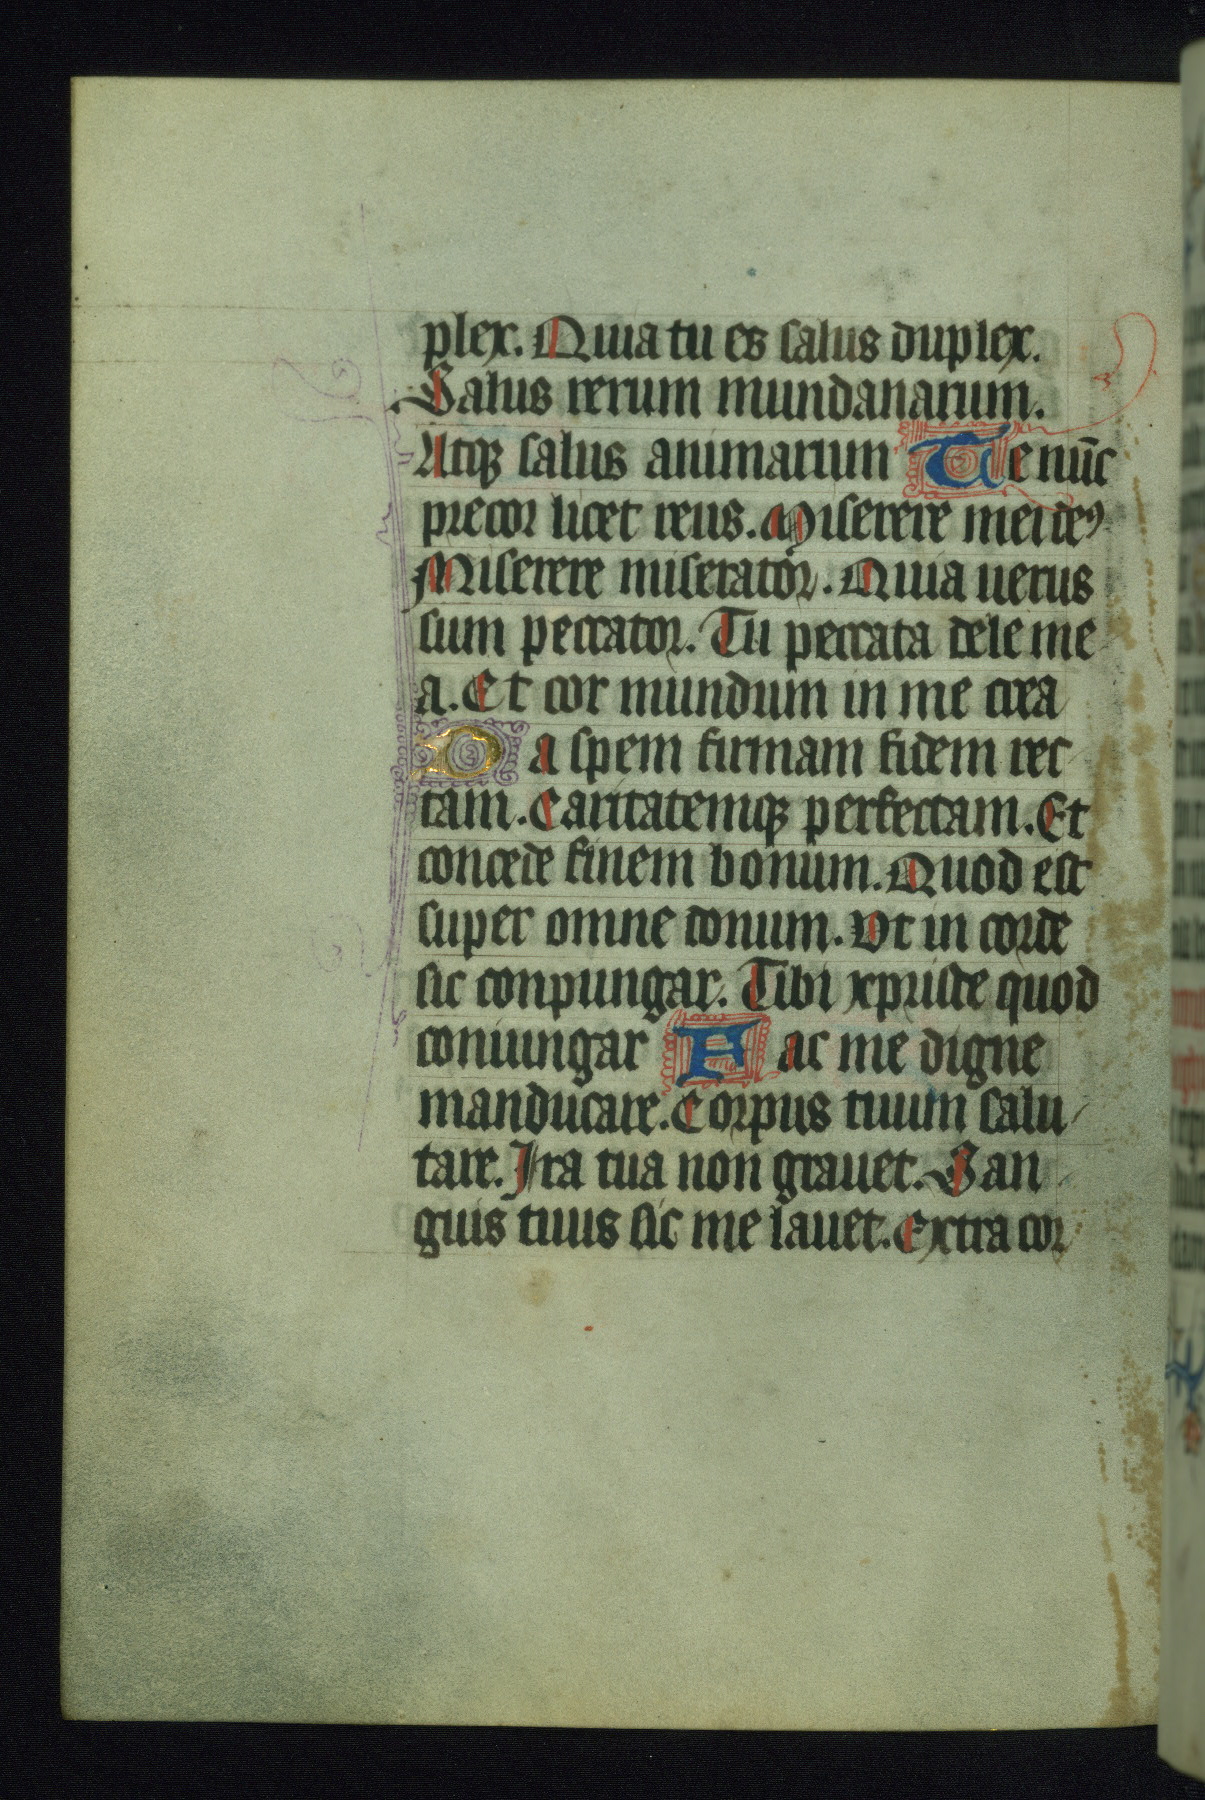 plex. Quia tu es salus duplex.
Salus rerum mundanarum.
Atqꝫ salus animarum Te nūc
precor licet reus. Miserere mei deꝰ
Miserere miserator. Quia uerus
sum peccator. Tu peccata dele me
a. Et cor mundum in me crea
Da spem firmam fidem rec
tam. Caritatemqꝫ perfectam. Et
concede finem bonum. Quod est
super omne donum. Vt in corde
sic conpungar. Tibi xpriste quod
coniungar Fac me digne
manducare. Corpus tuum salu
tare. Ira tua non grauet. San
guis tuus sic me lauet. Extra cor